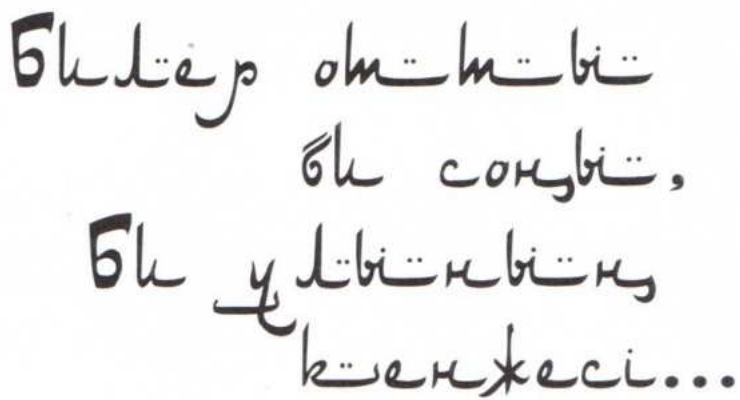 Билер отты
би соңы,
Би ұлының
кенжесі...